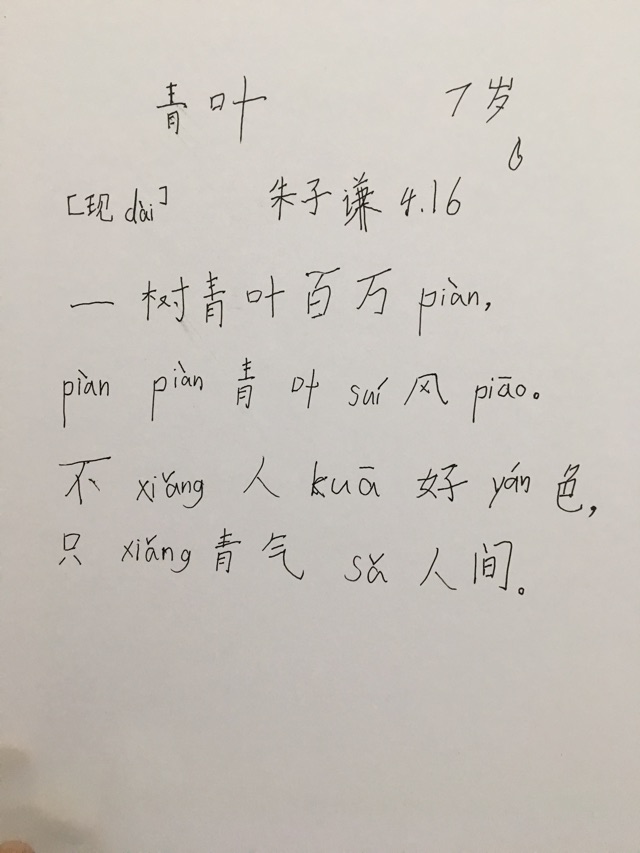 青叶 7岁
[现dài] 朱子谦 4.16
一树青叶百万piàn,
piàn piàn青叶suí风piāo。
不xiǎng人kuā好yán色,
只xiǎng青气sǎ人间。